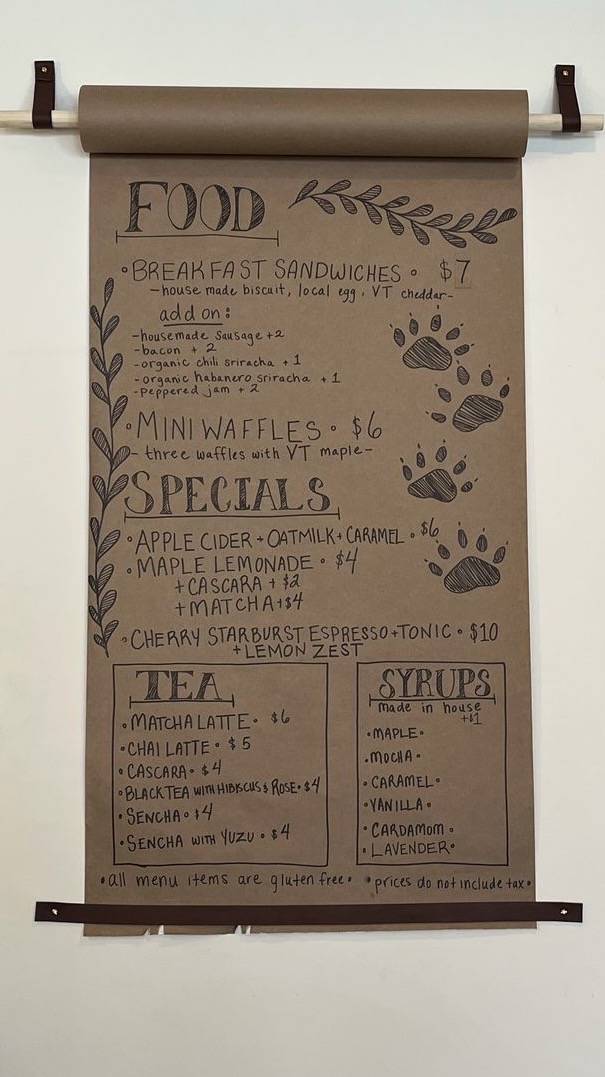 FOOD
• BREAKFAST SANDWICHES • $7
- house made biscuit, local egg, VT cheddar -
add on:
- housemade sausage +2
- bacon + 2
- organic chili sriracha + 1
- organic habanero sriracha + 1
- peppered jam + 2
• MINI WAFFLES • $6
- three waffles with VT maple -
SPECIALS
• APPLE CIDER + OATMILK + CARAMEL • $6
• MAPLE LEMONADE • $4
+ CASCARA + $2
+ MATCHA + $4
• CHERRY STARBURST ESPRESSO + TONIC • $10
+ LEMON ZEST
TEA
• MATCHA LATTE • $6
• CHAI LATTE • $5
• CASCARA • $4
• BLACK TEA WITH HIBISCUS & ROSE • $4
• SENCHA • $4
• SENCHA WITH YUZU • $4
SYRUPS
made in house
+$1
• MAPLE •
• MOCHA •
• CARAMEL •
• VANILLA •
• CARDAMOM •
• LAVENDER •
• all menu items are gluten free •
• prices do not include tax •